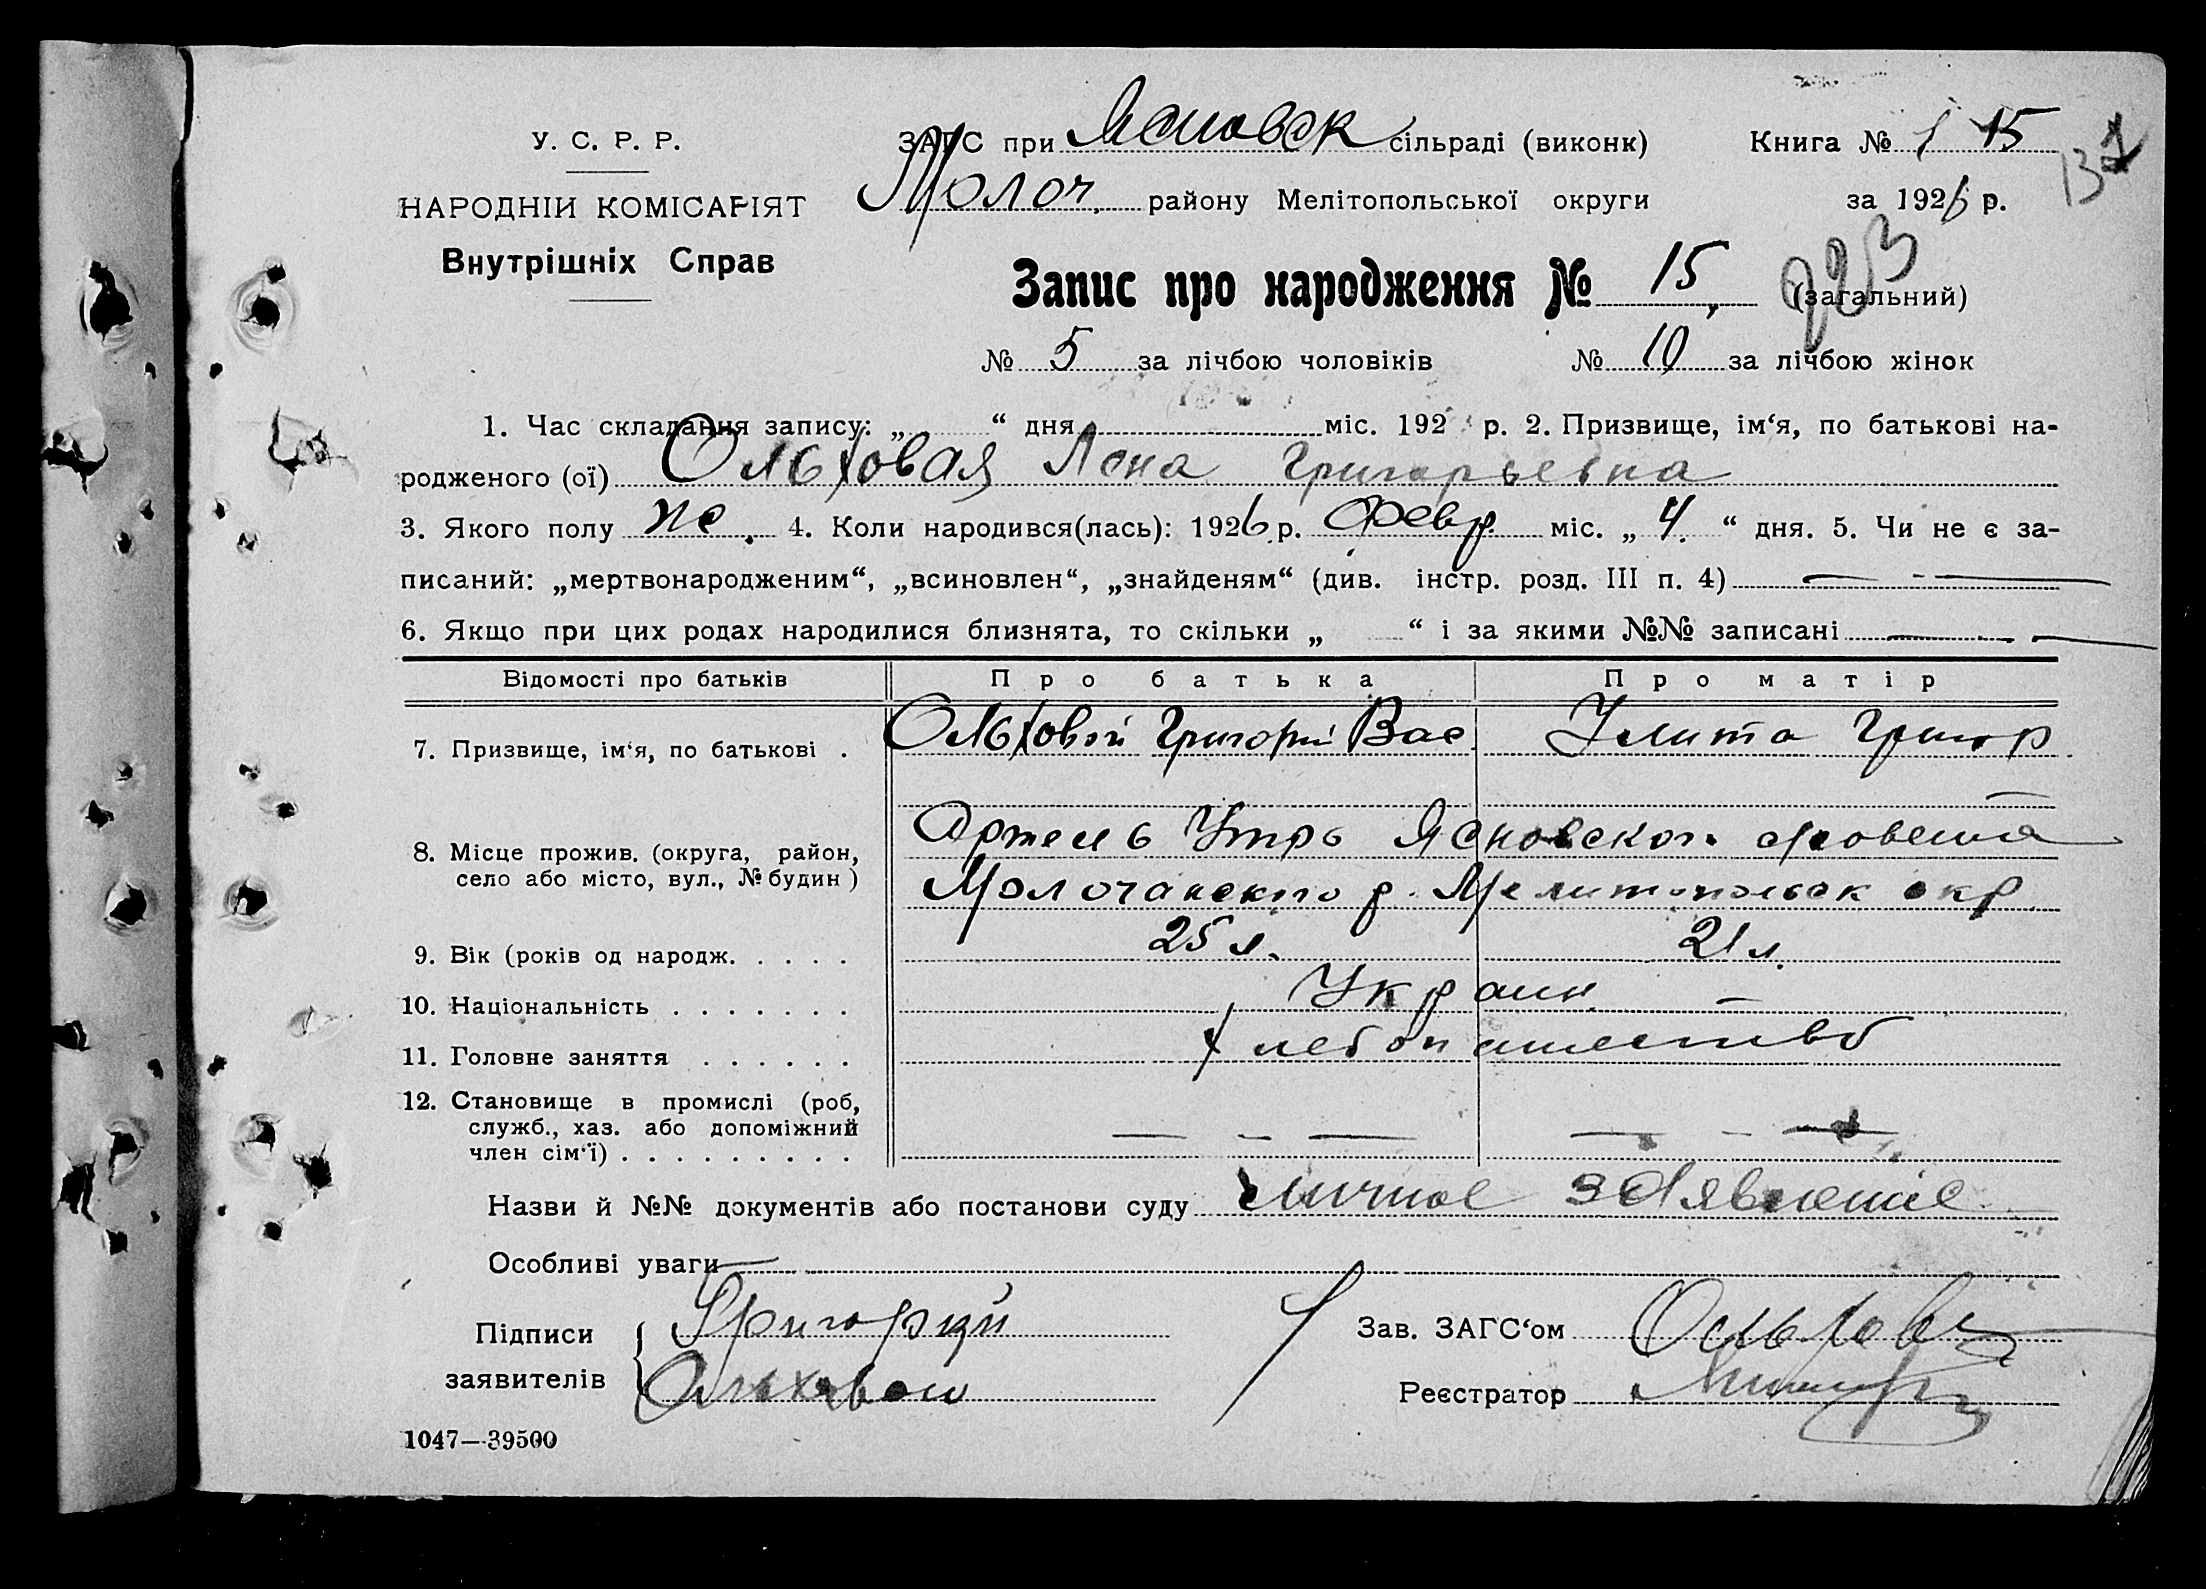 У. С. Р. Р.
НАРОДНІЙ КОМІСАРІЯТ
Внутрішніх Справ
ЗАГС при Ясновск сільраді (виконк) Книга № 1 15
Молоч. району Мелітопольської округи за 1926 р.
137
Запис про народження № 15. (загальний)
223
№ 5 за лічбою чоловіків № 10 за лічбою жінок
1. Час складання запису: „ “ дня міс. 192 р. 2. Призвище, ім‘я, по батькові на-
родженого (ої) Ольховая Лена Григорьевна
3. Якого полу же. 4. Коли народився(лась): 1926 р. Февр. міс. „ 4. “ дня. 5. Чи не є за-
писаний: „мертвонародженим“, „всиновлен“, „знайденям“ (див. інстр. розд. III п. 4) — - —
6. Якщо при цих родах народилися близнята, то скільки „ “ і за якими №№ записані — —
Відомості про батьків Про батька Про матір
7. Призвище, ім‘я, по батькові . Ольховой Григорий Вас Улита Григор
8. Місце прожив. (округа, район, село або місто, вул., № будин) Артель Утро Ясновского сельсовета
Молочанского р. Мелитопольск окр.
9. Вік (років од народж. . . . . 25 л. 21 л.
10. Національність . . . . . . . Украин —
11. Головне заняття . . . . . . Хлебопашество
12. Становище в промислі (роб, служб., хаз. або допоміжний член сім‘ї) . . . . . . . . . — - — — - —
Назви й №№ документів або постанови суду личное заявление
Особливі уваги —
Підписи заявителів { Григорий
Ольховой
Зав. ЗАГС‘ом Ольхов
Реєстратор
1047—39500